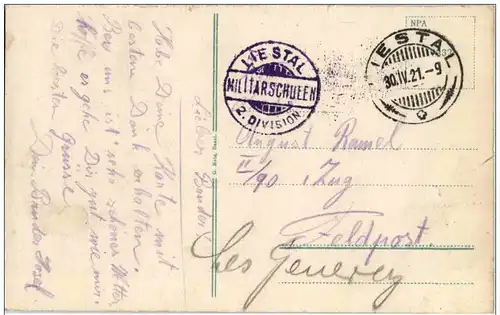 Lieber Bruder!
Habe Deine Karte mit
bestem Dank erhalten.
Bei uns ist sehr schönes Wetter
hoffe es gehe Dir gut wie mir.
Die besten Grüsse
Dein Bruder
LIESTAL
MILITÄRSCHULEN
2. DIVISION
LIESTAL
30.IV.21.-9
NPA
August Ramel
II/90 I Zug
Feldpost.
Les Genevey